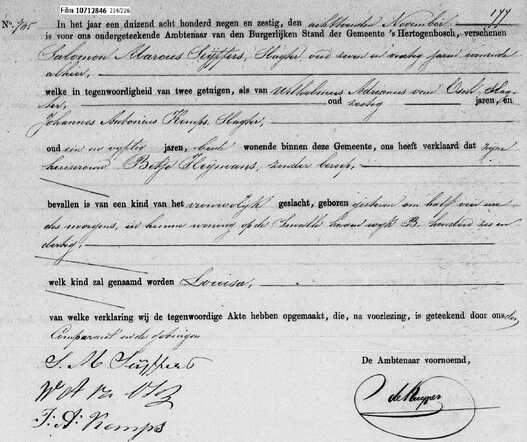 Film 10712846 224/226
177
No. 705
In het jaar een duizend acht honderd negen en zestig, den achttienden November
is voor ons ondergeteekende Ambtenaar van den Burgerlijken Stand der Gemeente 's Hertogenbosch, verschenen
Salomon Marcus Suijpers, Slager, oud zeven en jaren wonende
alhier,
welke in tegenwoordigheid van twee getuigen, als van Wilhelmus Adrianus van
oud zestig jaren, en
Johannes Antonius Kemps, Slager,
oud een en vijftig jaren, beide wonende binnen deze Gemeente, ons heeft verklaard dat zijne
huisvrouw Betje Heijmans, zonder beroep,
bevallen is van een kind van het vrouwelijk geslacht, geboren gisteren om half
des morgens, in hunne woning op de haven wijk B. honderd zes en
dertig,
welk kind zal genaamd worden Louisa,
van welke verklaring wij de tegenwoordige Akte hebben opgemaakt, die, na voorlezing, is geteekend door ons den
Comparant en de getuigen
S. M. Suijpers
W A v
J: A: Kemps
De Ambtenaar voornoemd,
de Kuyper